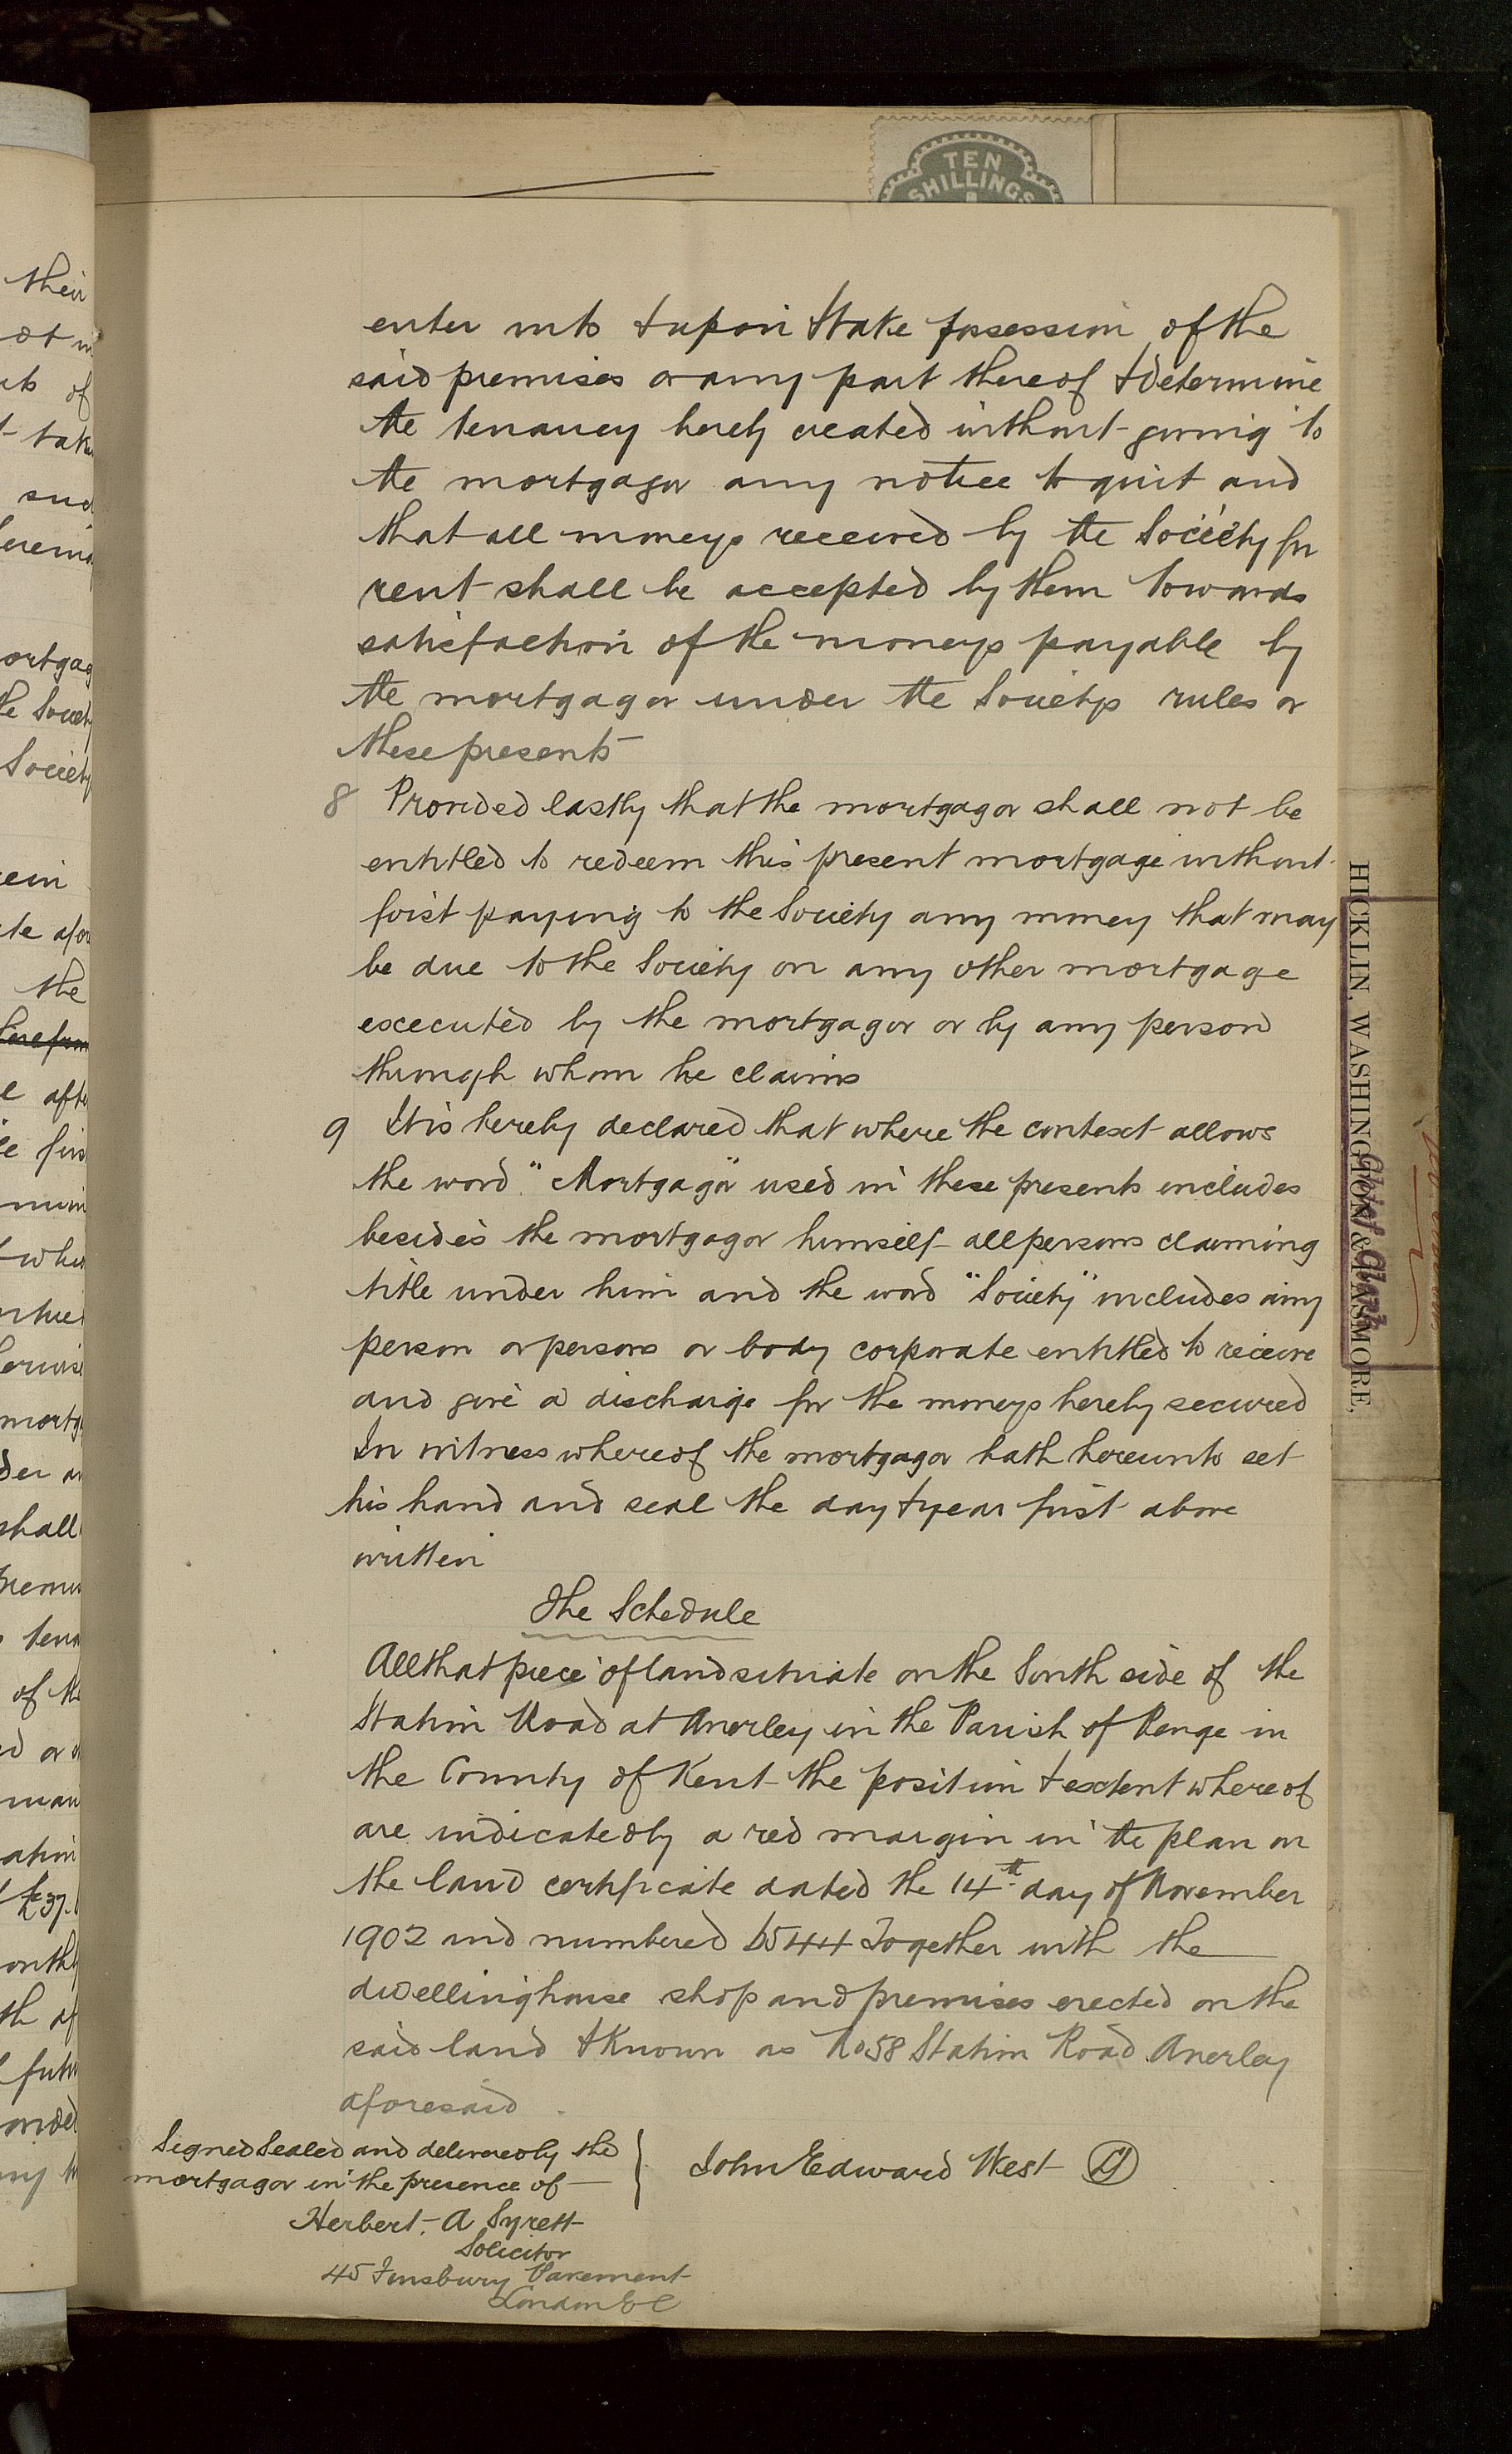 TEN
SHILLINGS
enter into & upon & take possession of the
said premises or any part thereof & determine
the tenancy hereby created without giving to
the mortgagor any notice to quit and
that all moneys received by the Society for
rent shall be accepted by them towards
satisfaction of the moneys payable by
the mortgagor under the Societys rules or
these presents
8 Provided lastly that the mortgagor shall not be
entitled to redeem this present mortgage without
first paying to the Society any money that may
be due to the Society on any other mortgage
executed by the mortgagor or by any person
through whom he claims
9 It is hereby declared that where the context allows
the word "Mortgagor" used in these presents includes
besides the mortgagor himself all persons claiming
title under him and the word "Society" includes any
person or persons or body corporate entitled to receive
and give a discharge for the moneys hereby secured
In witness whereof the mortgagor hath hereunto set
his hand and seal the day & year first above
written
The Schedule
All that piece of land situate on the South side of the
Station Road at Anerley in the Parish of Penge in
the County of Kent the position & extent whereof
are indicated by a red margin in the plan on
the land certificate dated the 14th day of November
1902 and numbered 6544 Together with the
dwellinghouse shop and premises erected on the
said land & known as No 58 Station Road Anerley
aforesaid.
Signed Sealed and delivered by the
mortgagor in the presence of
John Edward West
Herbert. A Syrett
Solicitor
45 Finsbury Pavement
London E C
HICKLIN, WASHINGTON & PASMORE.
Chief Clerk
their
of
such
the Society
Society
the
shall
of the